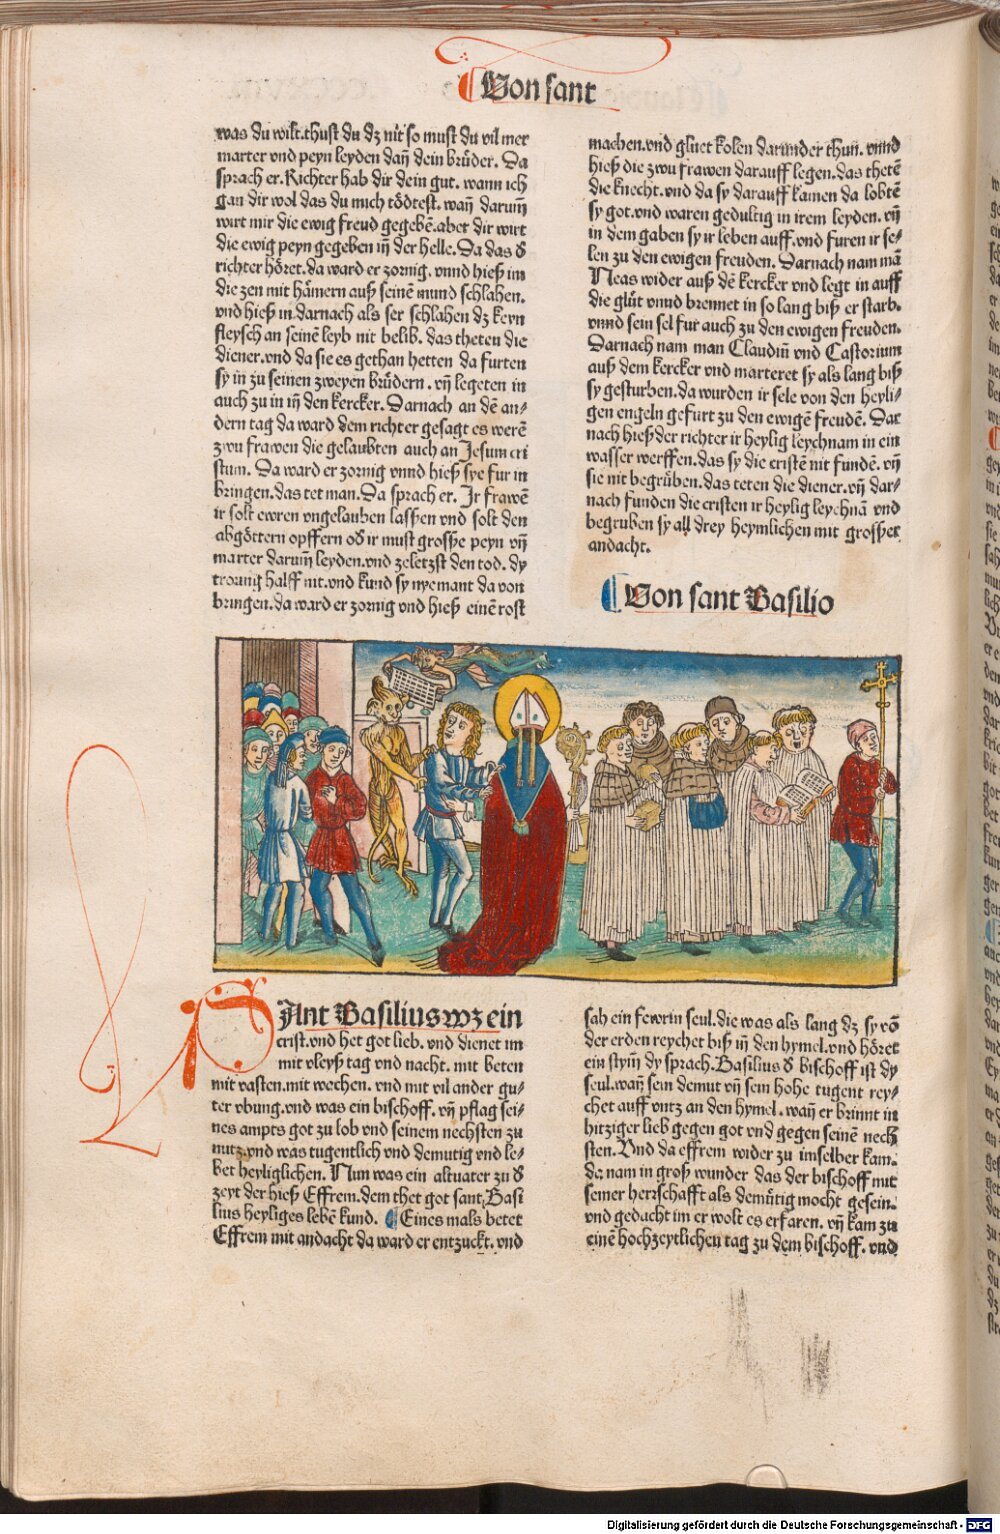 Von sant
was du wilt. thust du dz nit so must du vil mer
marter vnd peyn leyden dañ dein brůder. Da
sprach er. Richter hab dir dein gut. wann ich
gan dir wol das du mich tödtest. wañ darum̃
wirt mir die ewig freud gegebē. aber dir wirt
die ewig peyn gegeben in̄ der helle. Da das d̕
richter höret. da ward er zornig. vnnd hieß im
die zen mit hämern auß seinē mund schlahen.
vnd hieß in darnach als ser schlahen dz keyn
fleysch an seinē leyb nit belib. das theten die
diener. vnd da sie es gethan hetten da furten
sy in zu seinen zweyen brüdern. vñ legeten in
auch zu in in̄ den kercker. Darnach an dē an/
dern tag da ward dem richter gesagt es werē
zwu frawen die gelaubten auch an Jesum cri
stum. Da ward er zornig vnnd hieß sye fur in
bringen. das tet man. Da sprach er. Jr frawē
ir solt ewren vngelauben lassen vnd solt den
abgöttern opffern od̕ ir must grosse peyn vñ
marter darum̃ leyden. vnd zeletzst den tod. dy
trowung halff nit. vnd kund sy nyemant da von
bringen. da ward er zornig vnd hieß einē rost
machen. vnd gluet kolen darunder thun. vnnd
hieß die zwu frawen darauff legen. das thetē
die knecht. vnd da sy darauff kamen da lobtē
sy got. vnd waren gedultig in irem leyden. vñ
in dem gaben sy ir leben auff. vnd furen ir se/
len zu den ewigen freuden. Darnach nam mā
Neas wider auß dē kercker vnd legt in auff
die glůt vnnd brennet in so lang biß er starb.
vnnd sein sel fur auch zu den ewigen freuden.
Darnach nam man Claudiū vnd Castorium
auß dem kercker vnd marteret sy als lang biß
sy gesturben. da wurden ir sele von den heyli/
gen engeln gefurt zu den ewigē freudē. Dar
nach hieß der richter ir heylig leychnam in ein
wasser werffen. das sy die cristē nit fundē. vñ
sie nit begrüben. das teten die diener. vñ dar/
nach funden die cristen ir heylig leychnā vnd
begruben sy all drey heymlichen mit grosser
andacht.
Von sant Basilio
SAnt Basilius wz ein
crist. vnd het got lieb. vnd dienet im
mit vleyß tag vnd nacht. mit beten
mit vasten. mit wechen. vnd mit vil ander gu/
ter vbung. vnd was ein bischoff. vñ pflag sei/
nes ampts got zu lob vnd seinem nechsten zu
nutz. vnd was tugentlich vnd demutig vnd le/
bet heyliglichen. Nun was ein altuater zu d̕
zeyt der hieß Effrem. dem thet got sant Basi
lius heyliges lebē kund. Eines mals betet
Effrem mit andacht da ward er entzuckt. vnd
sah ein fewrin seul. die was als lang dz sy võ
der erden reychet biß in̄ den hymel. vnd höret
ein stym̃ dy sprach. Basilius d̕ bischoff ist dy
seul. wañ sein demut vñ sein hohe tugent rey/
chet auff vntz an den hymel. wañ er brinnt in
hitziger lieb gegen got vnd gegen seinē nech
sten. Vnd da effrem wider zu imselber kam.
da nam in groß wunder das der bischoff mit
seiner herrschafft als demütig mocht gesein.
vnd gedacht im er wolt es erfaren. vñ kam zu
einē hochzeytlichen tag zu dem bischoff. vnd
Digitalisierung gefördert durch die Deutsche Forschungsgemeinschaft - DFG